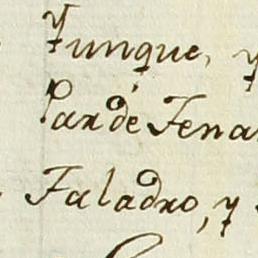 Yunque, y
Par de Tena
Taladro, y